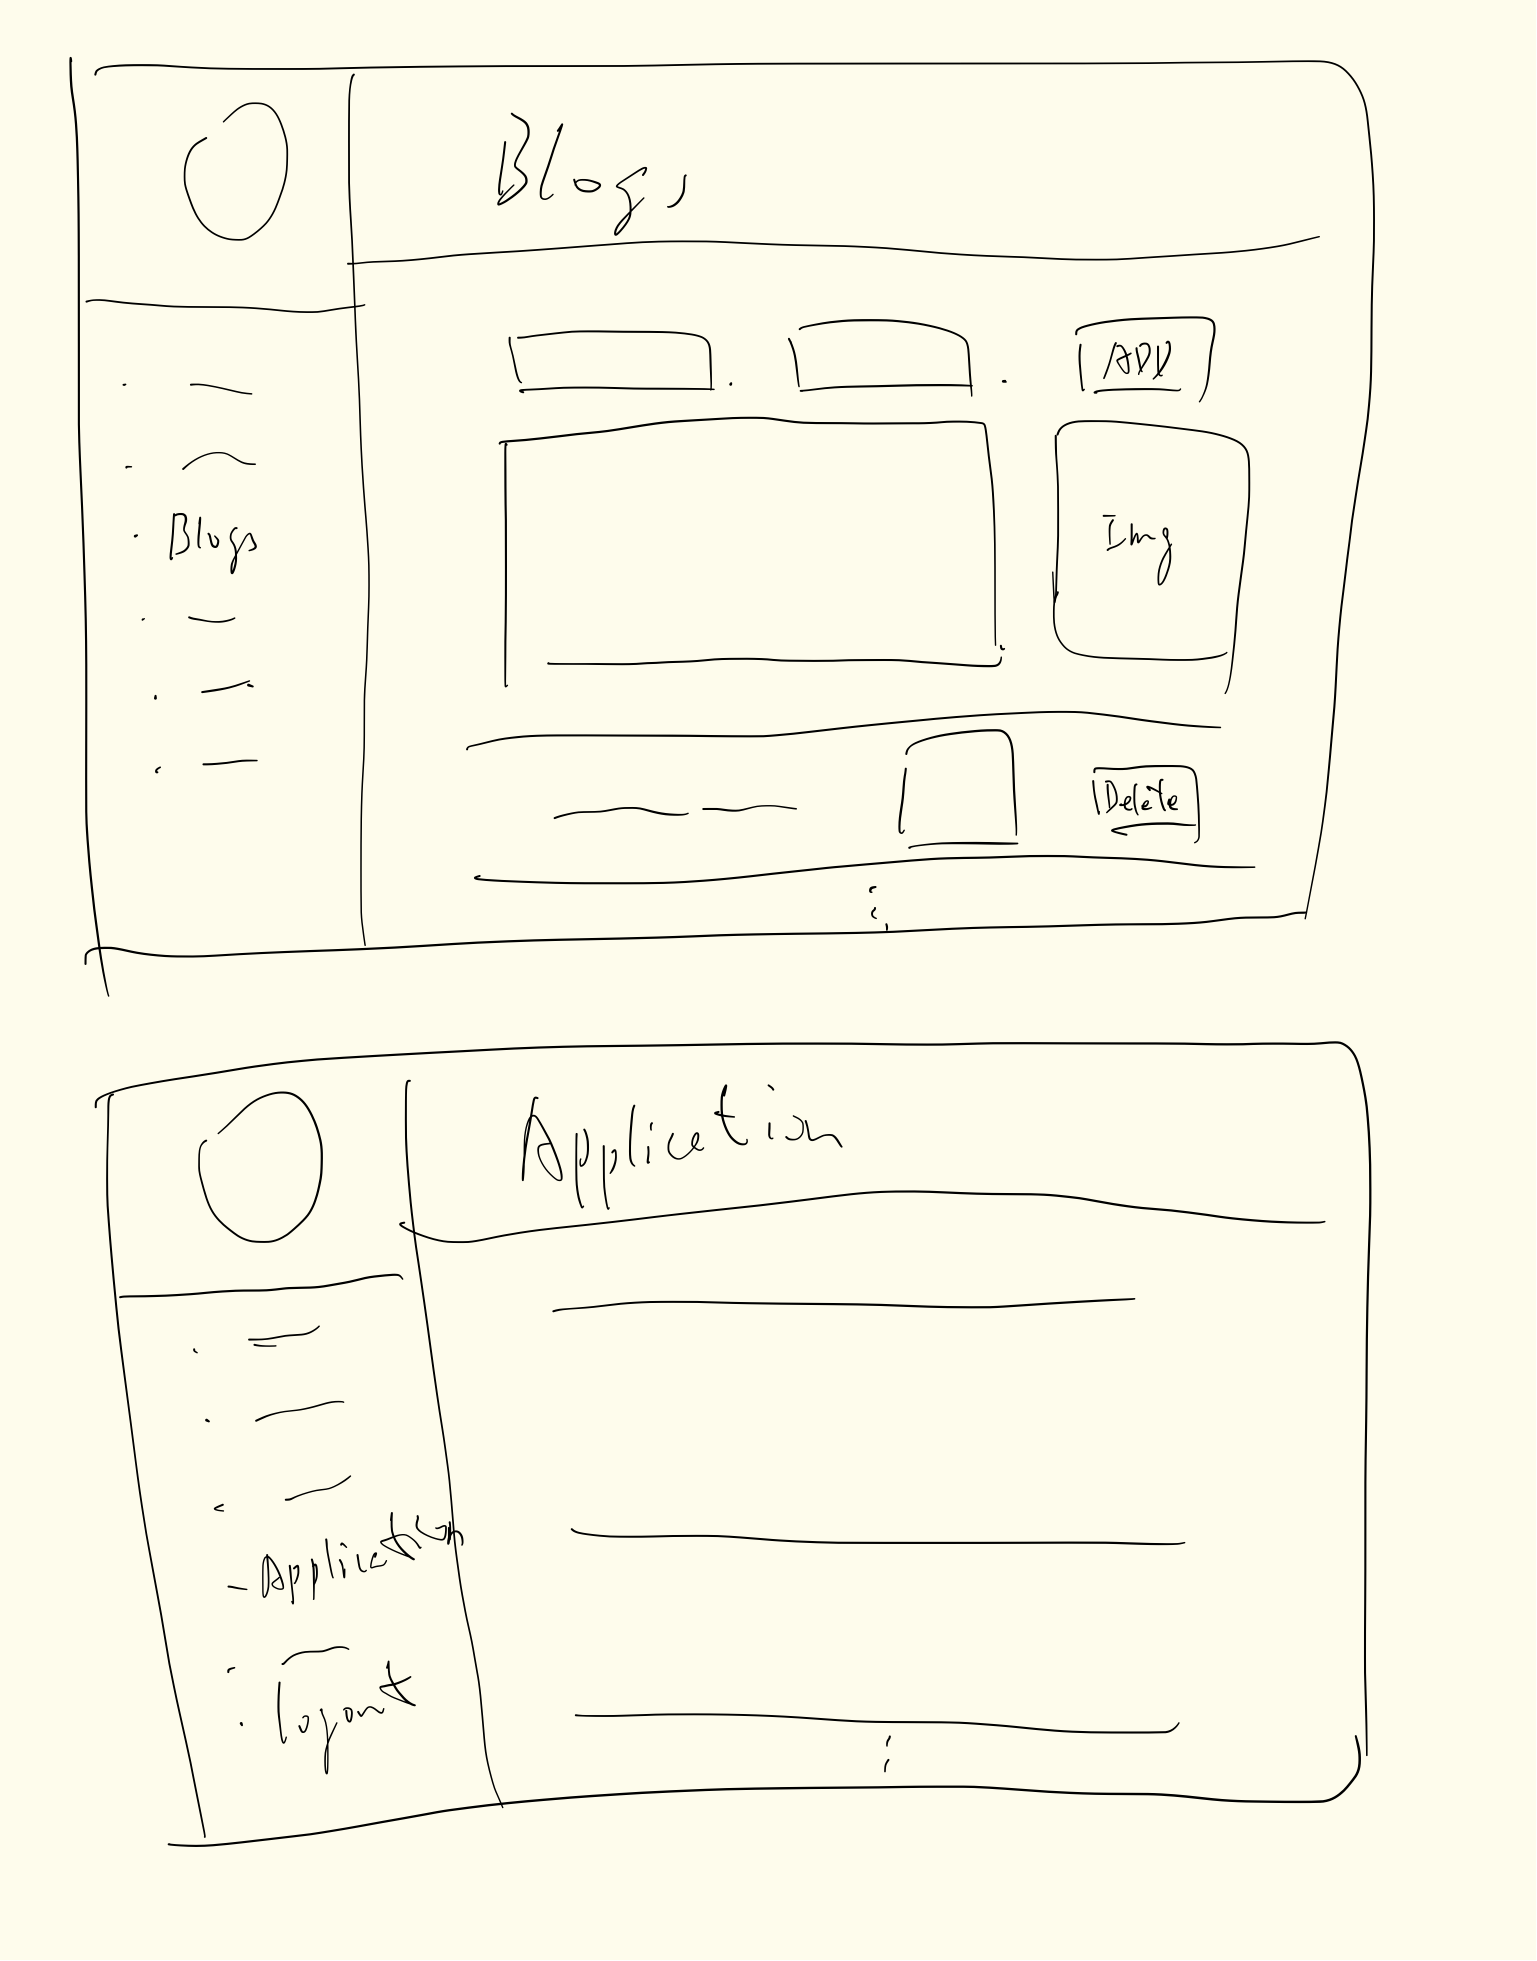 Blogs
ADD
Img
Blogs
Delete
Application
Application
Logout